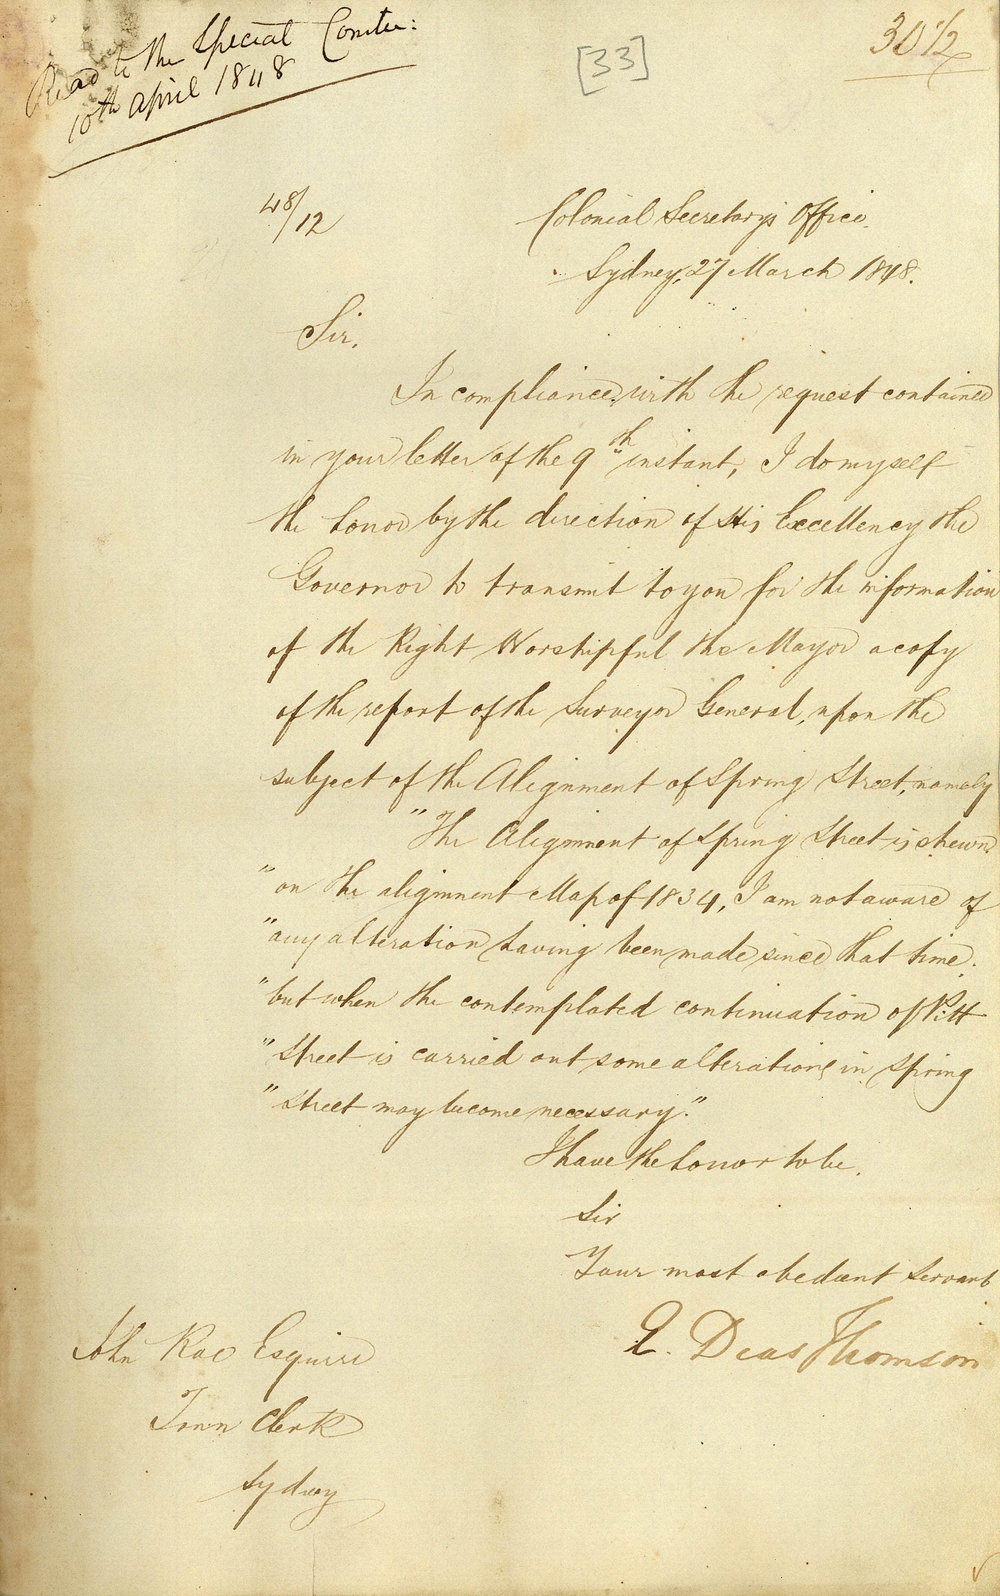 Read to the Special Comtee:
10th April 1848
[33]
30 1/2
48/12
Colonial Secretary's Office.
Sydney, 27 March 1848.
Sir,
In compliance with the request contained
in your letter of the 9th instant, I do myself
the honor by the direction of His Excellency the
Governor to transmit to you for the information
of the Right Worshipful the Mayor a copy
of the report of the Surveyor General, upon the
subject of the Alignment of Spring Street, namely
"The Alignment of Spring Street is shewn
"on the alignment Map of 1834, I am not aware of
"any alteration having been made since that time;
"but when the contemplated continuation of Pitt
"Street is carried out some alterations in Spring
"Street may become necessary."
I have the honor to be,
Sir
Your most obedient Servant
E. Deas Thomson
John Rae Esquire
Town Clerk
Sydney